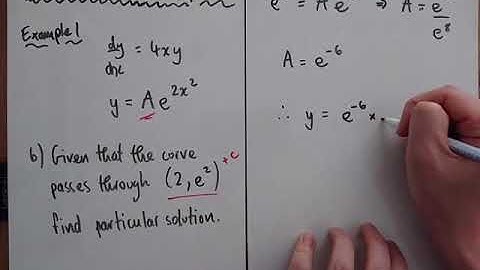 Example 1
dy/dx = 4xy
y = Ae^{2x^2}
b) Given that the curve
passes through (2, e^2) +c
find particular solution.
e = A e ⇒ A = e/e^8
A = e^{-6}
∴ y = e^{-6} ×